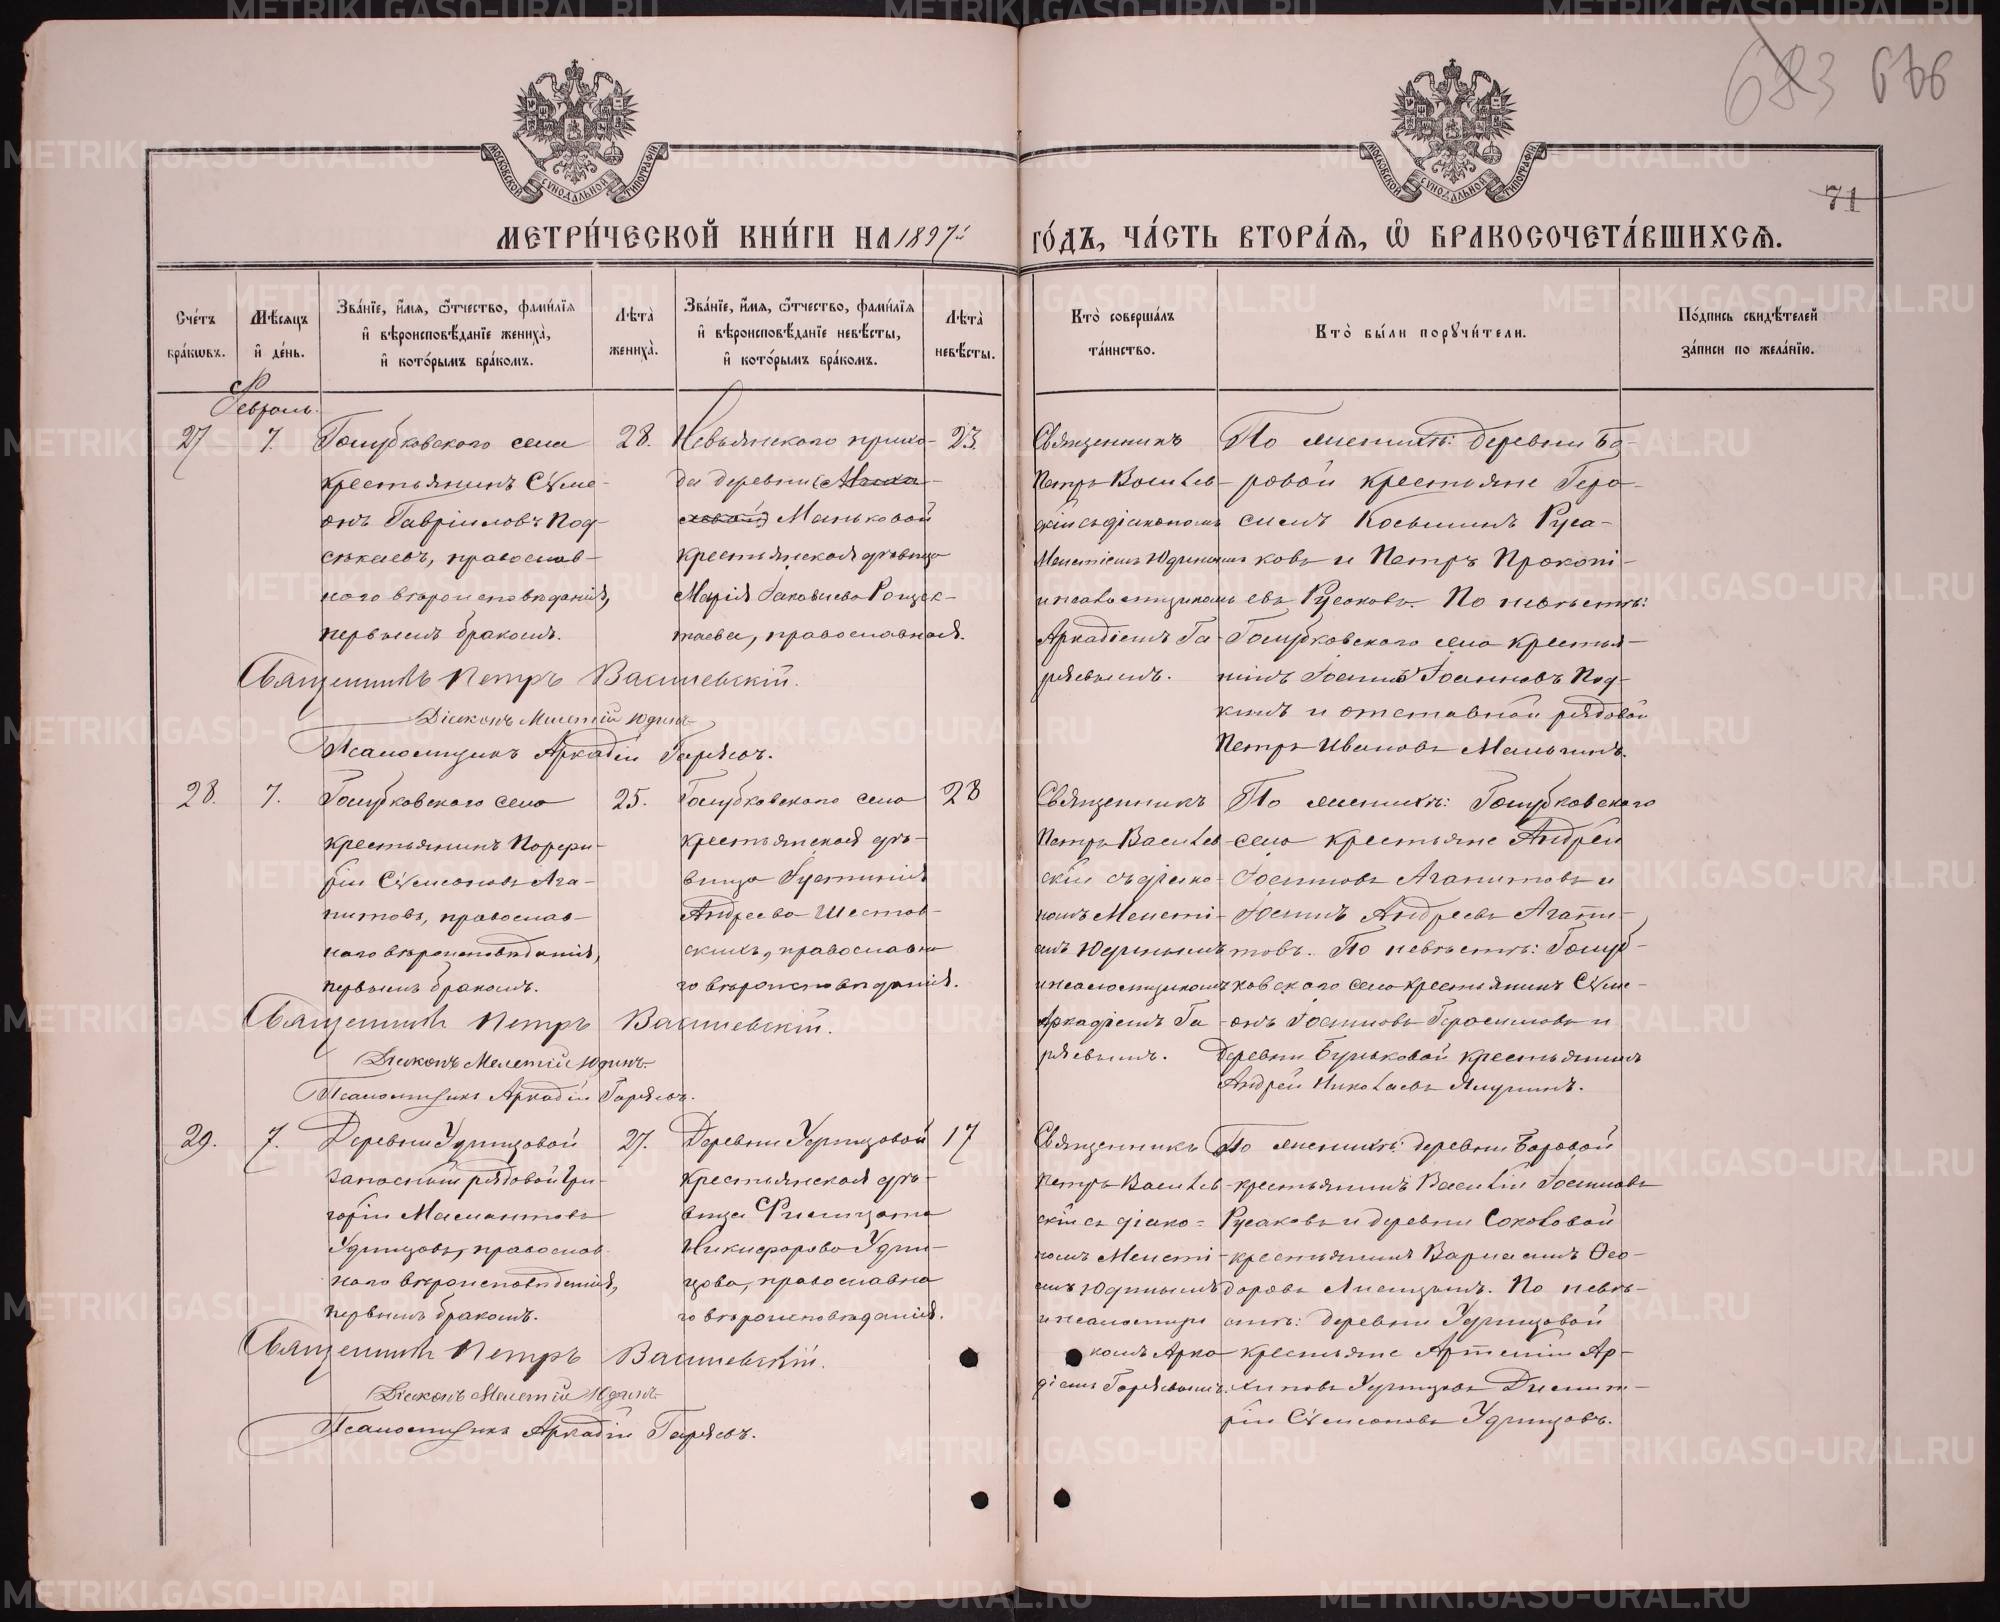 683 676
71
МОСКОВСКОЙ СѴНОДАЛЬНОЙ ТИПОГРАФІИ
МОСКОВСКОЙ СѴНОДАЛЬНОЙ ТИПОГРАФІИ
МЕТРИ́ЧЕСКОЙ КНИ́ГИ НА 1897й ГО́ДЪ, ЧА́СТЬ ВТОРА́Я, Ѽ БРАКОСОЧЕТА́ВШИХСЯ.
Сче́тъ бра́кѡвъ.
Мѣ́сяцъ и҆ де́нь.
Зва́нїе, и҆́мя, ѻ҆́тчество, фами́лїя и҆ вѣроисповѣ́данїе жениха̀, и҆ кото́рымъ бра́комъ.
Лѣ́та жениха̀.
Зва́нїе, и҆́мя, ѻ҆́тчество, фами́лїя и҆ вѣроисповѣ́данїе невѣ́сты, и҆ кото́рымъ бра́комъ.
Лѣ́та невѣ́сты.
Кто̀ соверша́лъ та́инство.
Кто̀ бы́ли порꙋчи́тели.
По́дпись свидѣ́телей за́писи по жела́нїю.
Февраль.
27
7.
Голубковского села
крестьянинъ Сѵме-
онъ Гавріиловъ Под-
сѣкаевъ, православ-
наго вѣроисповѣданія,
первымъ бракомъ.
28.
Невьянскаго прихо-
да деревни
Маньковой
крестьянская дѣвица
Марія Іаковлева
православная.
23.
Священникъ
Петръ Василев-
скій съ діакономъ
Мелетіемъ Юдинымъ
и псаломщикомъ
Аркадіемъ Га-
ряевымъ.
По женихѣ: деревни Бо-
ровой крестьяне Гера-
симъ Космин Руса-
ковъ и Петръ Прокопі-
евъ Русаковъ. По невѣстѣ:
Голубковского села крестья-
нинъ Іоаннъ Іоанновъ Под-
кинъ и отставной рядовой
Петръ Ивановъ Мальгинъ.
Священникъ Петръ Василевскій.
Діаконъ Мелетій Юдинъ
Псаломщикъ Аркадій Гаряевъ.
28.
7.
Голубковского села
крестьянинъ Порфи-
рій Сѵмеоновъ Ага-
питовъ, православ-
наго вѣроисповѣданія,
первымъ бракомъ.
25.
Голубковского села
крестьянская дѣ-
вица Іустинія
Андреева Шестов-
скихъ, православна-
го вѣроисповѣданія.
28
Священникъ
Петръ Василев-
скій съ діако-
номъ Мелеті-
емъ Юдинымъ
и псаломщикомъ
Аркадіемъ Га-
ряевымъ.
По женихѣ: Голубковского
села крестьяне Андрей
Іоанновъ Агапитовъ и
Іоаннъ Андреевъ Агапи-
товъ. По невѣстѣ: Голуб-
ковского села крестьянинъ Сѵме-
онъ Іоанновъ Герасимовъ и
деревни Буньковой крестьянинъ
Андрей Николаевъ Ялунинъ.
Священникъ Петръ Василевскій.
Діаконъ Мелетій Юдинъ
Псаломщикъ Аркадій Гаряевъ.
29.
7.
Деревни Удинцовой
запасный рядовой Гри-
горій Маманто​въ
Удинцовъ, православ-
наго вѣроисповѣданія,
первымъ бракомъ.
27.
Деревни Удинцовой
крестьянская дѣ-
вица Филицата
Никифорова Удин-
цова, православна-
го вѣроисповѣданія.
17
Священникъ
Петръ Василев-
скій съ діако-
номъ Мелеті-
емъ Юдинымъ
и псаломщи
комъ Арка
діемъ Гаряевымъ.
По женихѣ: деревни Боровой
крестьянинъ Василій Іоанновъ
Русаковъ и деревни Соколовой
крестьянинъ Варлаамъ Ѳео-
доровъ Лисицынъ. По невѣ-
стѣ: деревни Удинцовой
крестьяне Артемій Ар-
хиповъ Удинцовъ Димит-
рій Сѵмеоновъ Удинцовъ.
Священникъ Петръ Василевскій.
Діаконъ Мелетій Юдинъ
Псаломщикъ Аркадій Гаряевъ.
METRIKI.GASO-URAL.RU